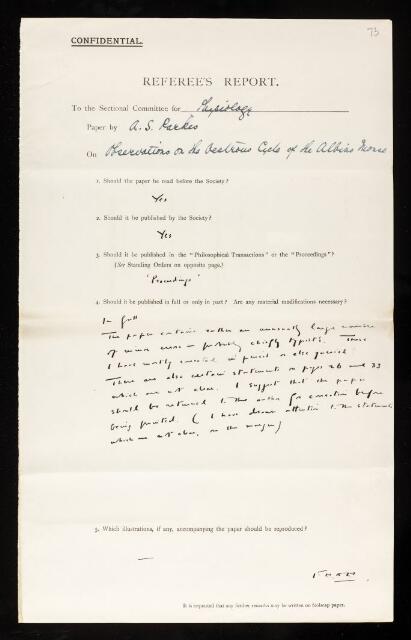 73
CONFIDENTIAL.
REFEREE'S REPORT.
To the Sectional Committee for Physiology
Paper by A. S. Parkes
On Observations on the Oestrous Cycle of the Albino Mouse
1. Should the paper be read before the Society?
Yes
2. Should it be published by the Society?
Yes
3. Should it be published in the "Philosophical Transactions" or the "Proceedings"?
(See Standing Orders on opposite page.)
'Proceedings'
4. Should it be published in full or only in part? Are any material modifications necessary?
In full
The paper contains rather an unusually large number
of minor errors — probably chiefly typist's. These
I have mostly corrected in pencil or else queried.
There are also certain statements on pages 26 and 33
which are not clear. I suggest that the paper
should be returned to the author for correction before
being printed. (I have drawn attention to the statements
which are not clear, in the margin)
5. Which illustrations, if any, accompanying the paper should be reproduced?
—
It is requested that any further remarks may be written on foolscap paper.